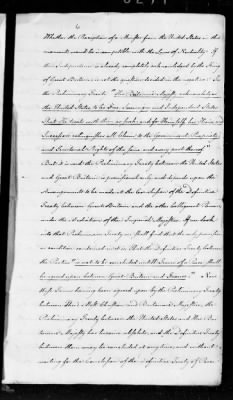 6
Whether the Reception of a Minister from the United States in this
moment would be incompatible with the Laws of Neutrality. If
their independence is already completely acknowledged by the King
of Great Britain is not the question decided in the negative. In
the Preliminary Treaty "His Britannic Majesty acknowledges
the United States to be Free, Sovereign and Independent States
That He treats with them as such, and for Himself, his Heirs and
Successors relinquishes all Claims to the Government, Propriety
and Territorial Rights of the same and every part thereof."
But it is said the Preliminary Treaty between the United States
and Great Britain is provisional only and depends upon the
Arrangements to be made at the Conclusion of the Definitive
Treaty between Great Britain and the other belligerent Powers
under the Mediation of their Imperial Majesties. If we look
into that Preliminary Treaty we shall find that the only provision
or condition contained in it is, That the Definitive Treaty between
the Parties "is not to be concluded until Terms of a Peace shall
be agreed upon between Great Britain and France." Now
these Terms having been agreed upon by the Preliminary Treaty
between Their Most Christian and Britannic Majesties, the
Preliminary Treaty between the United States and His Britan-
nic Majesty has become Absolute, and the Definitive Treaty
between them may be concluded at any time and without
waiting for the Conclusion of the Definitive Treaty of Peace